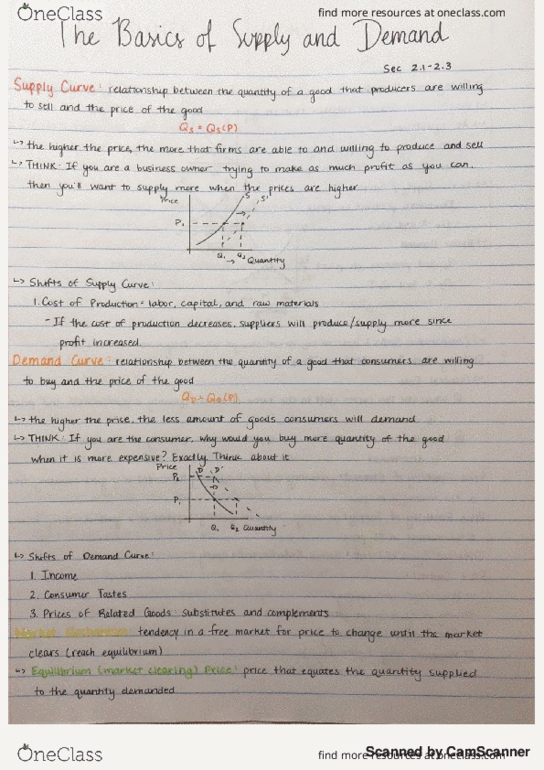 OneClass
find more resources at oneclass.com
The Basics of Supply and Demand
Sec 2.1-2.3
Supply Curve: relationship between the quantity of a good that producers are willing
to sell and the price of the good
Qs = Qs(P)
↳ the higher the price, the more that firms are able to and willing to produce and sell
↳ THINK: If you are a business owner trying to make as much profit as you can,
then you'll want to supply more when the prices are higher
Price
S S'
P₁
Q₁ Q₂
→ Quantity
↳ Shifts of Supply Curve:
1. Cost of Production: labor, capital, and raw materials
- If the cost of production decreases, suppliers will produce/supply more since
profit increased.
Demand Curve: relationship between the quantity of a good that consumers are willing
to buy and the price of the good
QD = QD(P)
↳ the higher the price, the less amount of goods consumers will demand
↳ THINK: If you are the consumer, why would you buy more quantity of the good
when it is more expensive? Exactly. Think about it
Price
D D'
P₂
P₁
Q₁ Q₂ Quantity
↳ Shifts of Demand Curve:
1. Income
2. Consumer Tastes
3. Prices of Related Goods: substitutes and complements
Market Mechanism: tendency in a free market for price to change until the market
clears (reach equilibrium)
↳ Equilibrium (market clearing) Price: price that equates the quantity supplied
to the quantity demanded
OneClass
find more resources at oneclass.com
Scanned by CamScanner